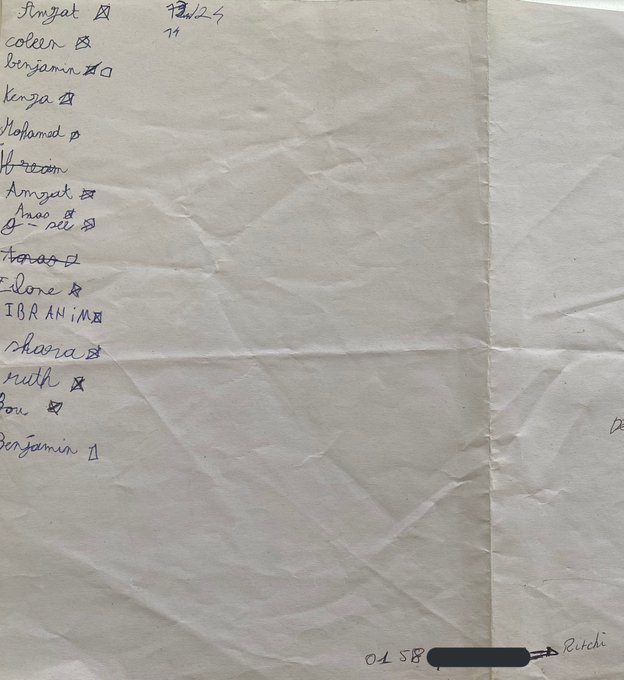 Amzat
coleen
benjamin
Kenza
Mohamed
Amzat
Anas
g-see
Anas
Eilone
IBRAHiM
shara
ruth
Bou
Benjamin
De
01 58
Ritchi